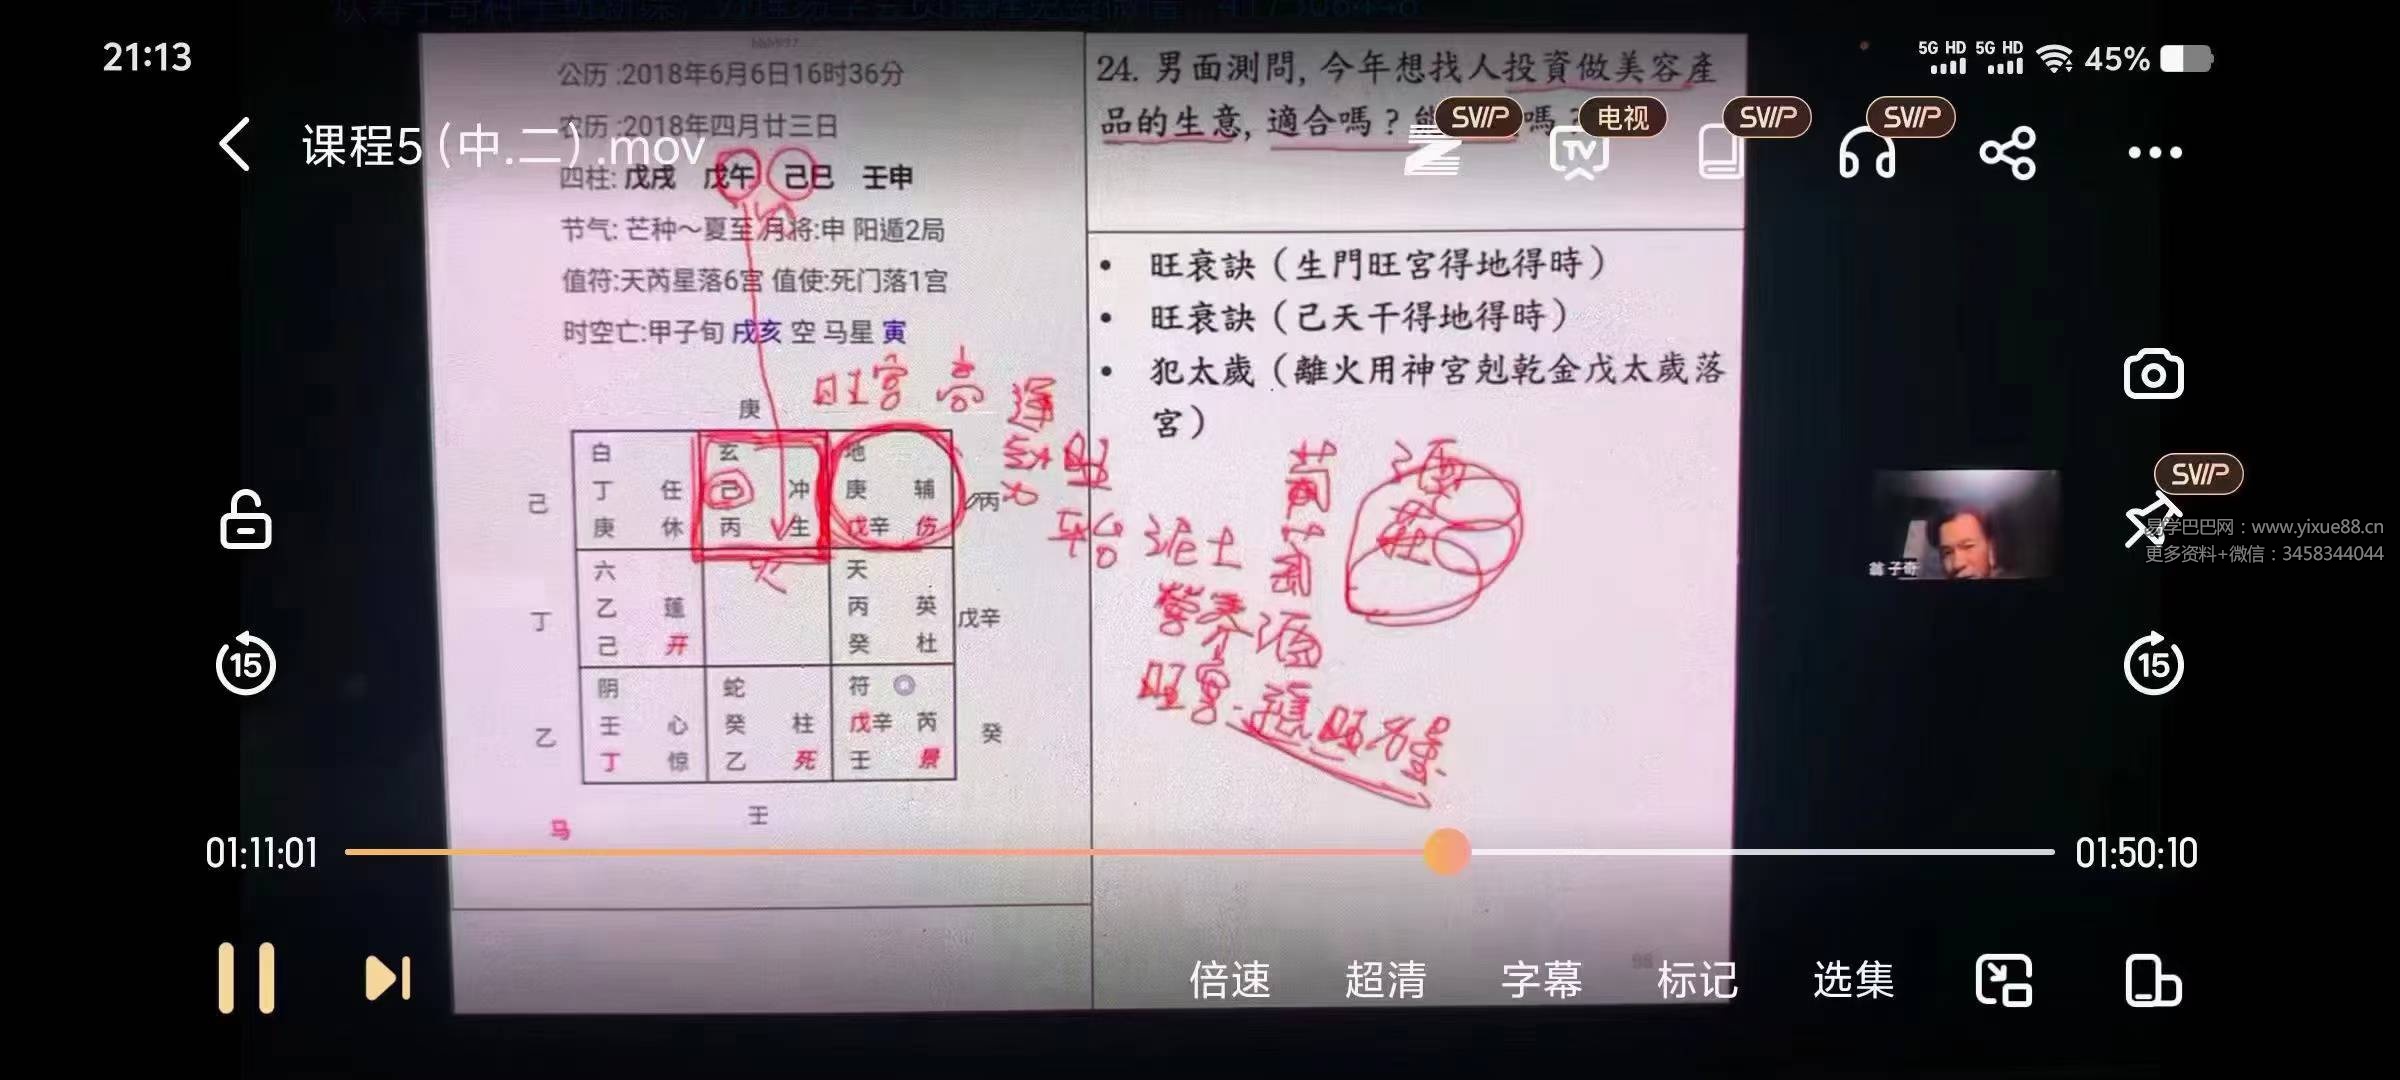 21:13
5G HD 5G HD 45%
课程5 (中.二) .mov
SVIP
电视
SVIP
SVIP
公历 :2018年6月6日16时36分
农历 :2018年四月廿三日
四柱: 戊戌 戊午 己巳 壬申
节气: 芒种～夏至 月将:申 阳遁2局
值符:天芮星落6宫 值使:死门落1宫
时空亡:甲子旬 戌亥 空 马星 寅
24. 男面測問, 今年想找人投資做美容產
品的生意, 適合嗎？能 嗎？
• 旺衰訣（生門旺宮得地得時）
• 旺衰訣（己天干得地得時）
• 犯太歲（離火用神宮剋乾金戊太歲落
宮）
旺宫 高
運
旺
平台 泥土
葡萄
酒
莊
營养 酒
旺宮
火
庚
白 玄 地
己 丁 任 己 冲 庚 辅 丙
庚 休 丙 生 戊辛 伤
六 天
丁 乙 蓬 丙 英 戊辛
己 开 癸 杜
阴 蛇 符
乙 壬 心 癸 柱 戊辛 芮 癸
丁 惊 乙 死 壬 景
马 壬
SVIP
易学巴巴网：www.yixue88.cn
更多资料+微信：3458344044
翁子奇
15
15
01:11:01
01:50:10
倍速 超清 字幕 标记 选集